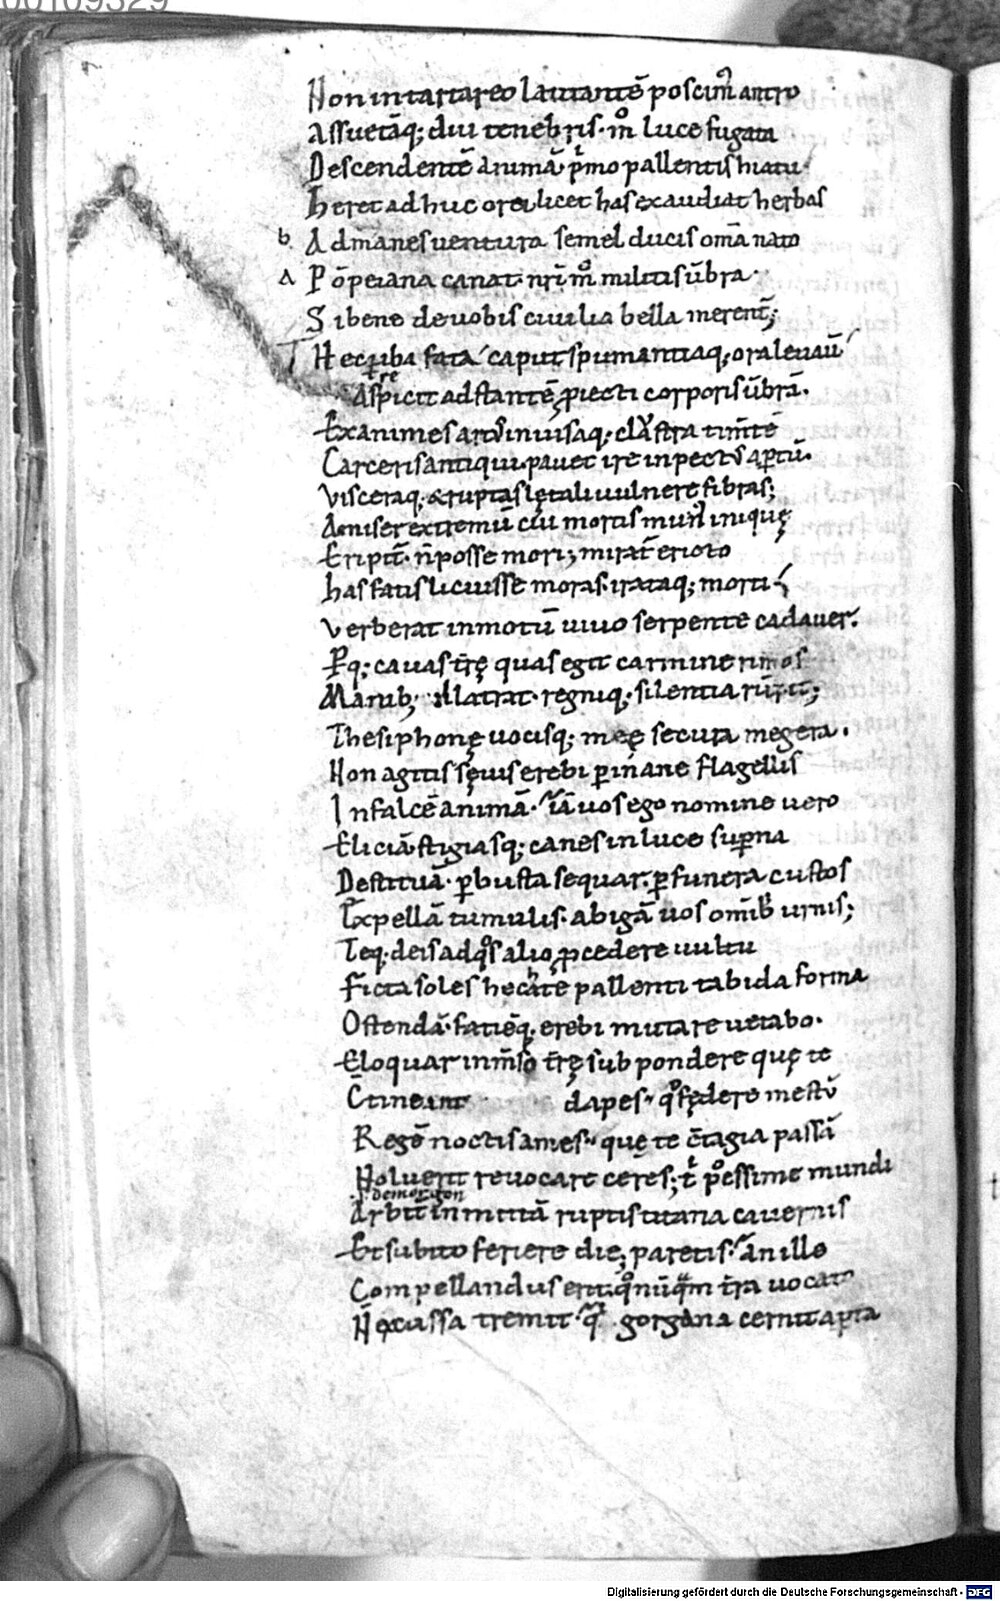 00109329
Non intartareo latitantē poscim᷒ antro
Assuetāq; diu tenebris· m̊ luce fugata
Descendentē animā· pⁱmo pallentis hiatu·
Heret adhuc orci· licet has exaudiat herbas
b Ad manes uentura semel ducis om̄a nato
a Pōpeiana canat· nr̄i m̊ militis ūbra·
Si bene deuobis ciuilia bella merent̄;
Hec ubi fata caput spumantiaq; ora leuauit
Aspicit adstantē ꝓiecti corporis ūbrā·
Exanimes art᷒ inuisaq; claustra timētē
Carceris antiqui· pauet ire inpect᷒ aꝑtū·
Visceraq; & ruptas lętali uulnere fibras;
A miser extremū cui mortis mun᷒ iniquę
Eripit̄· n̄ posse mori; mirat̄ ericto
has fatis licuisse moras· irataq; morti
Verberat inmotū uiuo serpente cadauer·
Pq; cauas t̄rę quas egit carmine rimas
Manib; illatrat· regniq; silentia rūpit;
Thesiphonę uocisq; meę secura megera·
Non agitis sęuis erebi ꝑ inane flagellis
Infalcē animā· iā uos ego nomine uero
Eliciā· stigiasq; canes in luce suꝑna
Destituā· ꝑ busta sequar· ꝑ funera custos
Expellā tumulis· abigā uos omīb; urnis;
Teq· deis adq̊s alio ꝓcedere uultu
Ficta soles hecate pallenti tabida forma
Ostendā· faciēq; erebi mutare uetabo·
Eloquar inm̄so t̄rę sub pondere quę te
C̄tineant dapes· q̊ fędere mestū
Regē noctis ames· quę te c̄tagia passā
Noluerit reuocare ceres; t̄ pessime mundi
.s. demorgon
Arbit̄ inmittā ruptis titana cauernis
Et subito feriere die; paretis· an ille
Compellandus erit· q̊ nūquā t̄ra uocato
N̄ c̄cussa tremit· qⁱ gorgona cernit aꝑta
Digitalisierung gefördert durch die Deutsche Forschungsgemeinschaft - DFG